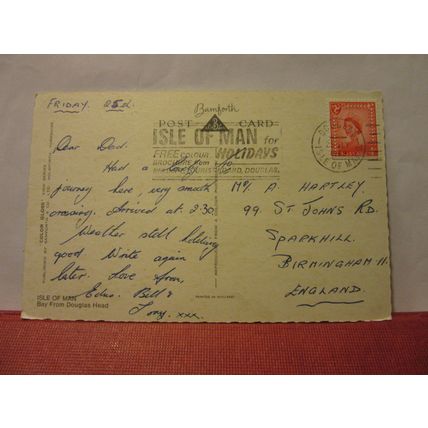 FRIDAY.
Bamforth
POST CARD
ISLE OF MAN for
HOLIDAYS
FREE COLOUR
BROCHURE from
TOURIST BOARD, DOUGLAS.
Dear Dad.
Had a lovely
journey here, very smooth
crossing. Arrived at 2.30.
Weather still holding
good Write again
later. Love from,
Edna. Bill &
Tony. xxx.
Mr. A. HARTLEY.
99. ST JOHNS RD.
SPARKHILL.
BIRMINGHAM 11.
ENGLAND.
ISLE OF MAN
Bay From Douglas Head
PRINTED IN HOLLAND
ISLE OF MAN